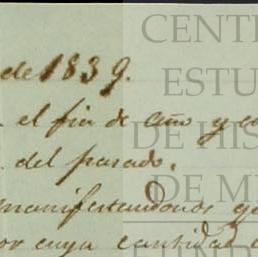 de 1839.
el fin de año y
del pasado.
manifestandonos
por cuya cantidad
CENT
ESTU
DE HIS
DE M